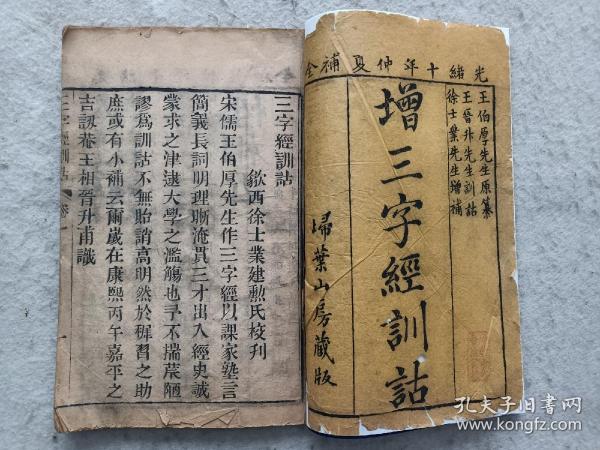 光緒十年仲夏補全
王伯厚先生原纂
王晉升先生訓詁
徐士業先生增補
增三字經訓詁
掃葉山房藏版
三字經訓詁
歙西徐士業建勲氏校刊
宋儒王伯厚先生作三字經以課家塾言
簡義長詞明理晰淹貫三才出入經史誠
蒙求之津逮大學之濫觴也予不揣荒陋
謬爲訓詁不無貽誚高明然於穉習之助
庶或有小補云爾歲在康熙丙午嘉平之
吉訒菴王相晉升甫識
三字經訓詁
孔夫子旧书网
www.kongfz.com